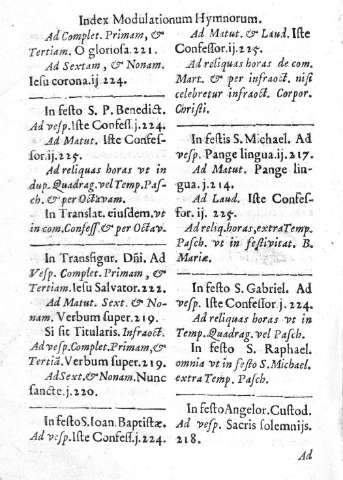 Index Modulationum Hymnorum.
Ad Complet. Primam, &
Tertiam. O gloriosa. 221.
Ad Sextam, & Nonam.
Iesu corona. ij 224.
In festo S. P. Benedict.
Ad vesp. Iste Confess. j. 224.
Ad Matut. Iste Confes-
sor. ij. 225.
Ad reliquas horas vt in
dup. Quadrag. vel Temp. Pas-
ch. & per Octavam.
In Translat. eiusdem, vt
in com. Confess. & per Octav.
In Transfigur. Dñi. Ad
Vesp. Complet. Primam, &
Tertiam. Iesu Salvator. 222.
Ad Matut. Sext. & No-
nam. Verbum super. 219.
Si sit Titularis. Infraoct.
Ad vesp. Complet. Primam, &
Tertiã. Verbum super. 219.
Ad Sext. & Nonam. Nunc
sancte. j. 220.
In festo S. Ioan. Baptistæ.
Ad vesp. Iste Confess. j. 224.
Ad Matut. & Laud. Iste
Confessor. ij. 225.
Ad reliquas horas de com.
Mart. & per infraoct. nisi
celebretur infraoct. Corpor.
Christi.
In festis S. Michael. Ad
vesp. Pange lingua. ij. 217.
Ad Matut. Pange lin-
gua. j. 214.
Ad Laud. Iste Confes-
sor. ij. 225.
Ad reliq. horas, extra Temp.
Pasch. vt in festivitat. B.
Mariæ.
In festo S. Gabriel. Ad
vesp. Iste Confessor j. 224.
Ad reliquas horas vt in
Temp. Quadrag. vel Pasch.
In festo S. Raphael.
omnia vt in festo S. Michael.
extra Temp. Pasch.
In festo Angelor. Custod.
Ad vesp. Sacris solemnijs.
218.
Ad